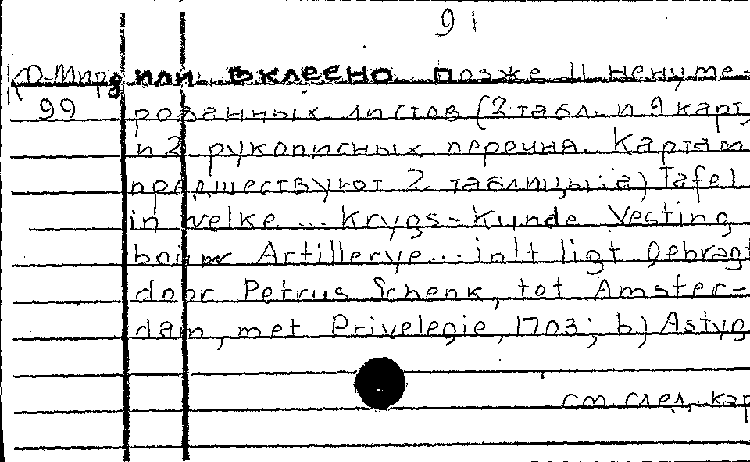 91
Ф-Мирз или вклеено позже 11 ненуме-
99 рованных листов (2 табл. и 9 карт)
и 2 рукописных перечня. Картам
предшествуют 2 таблицы: а) Tafel
in welke ... Krygs-Kunde Vesting
bouw Artillerye... in't ligt gebragt
door Petrus Schenk, tot Amster-
dam, met Privelegie, 1703; b) Astyg
см. след. кар